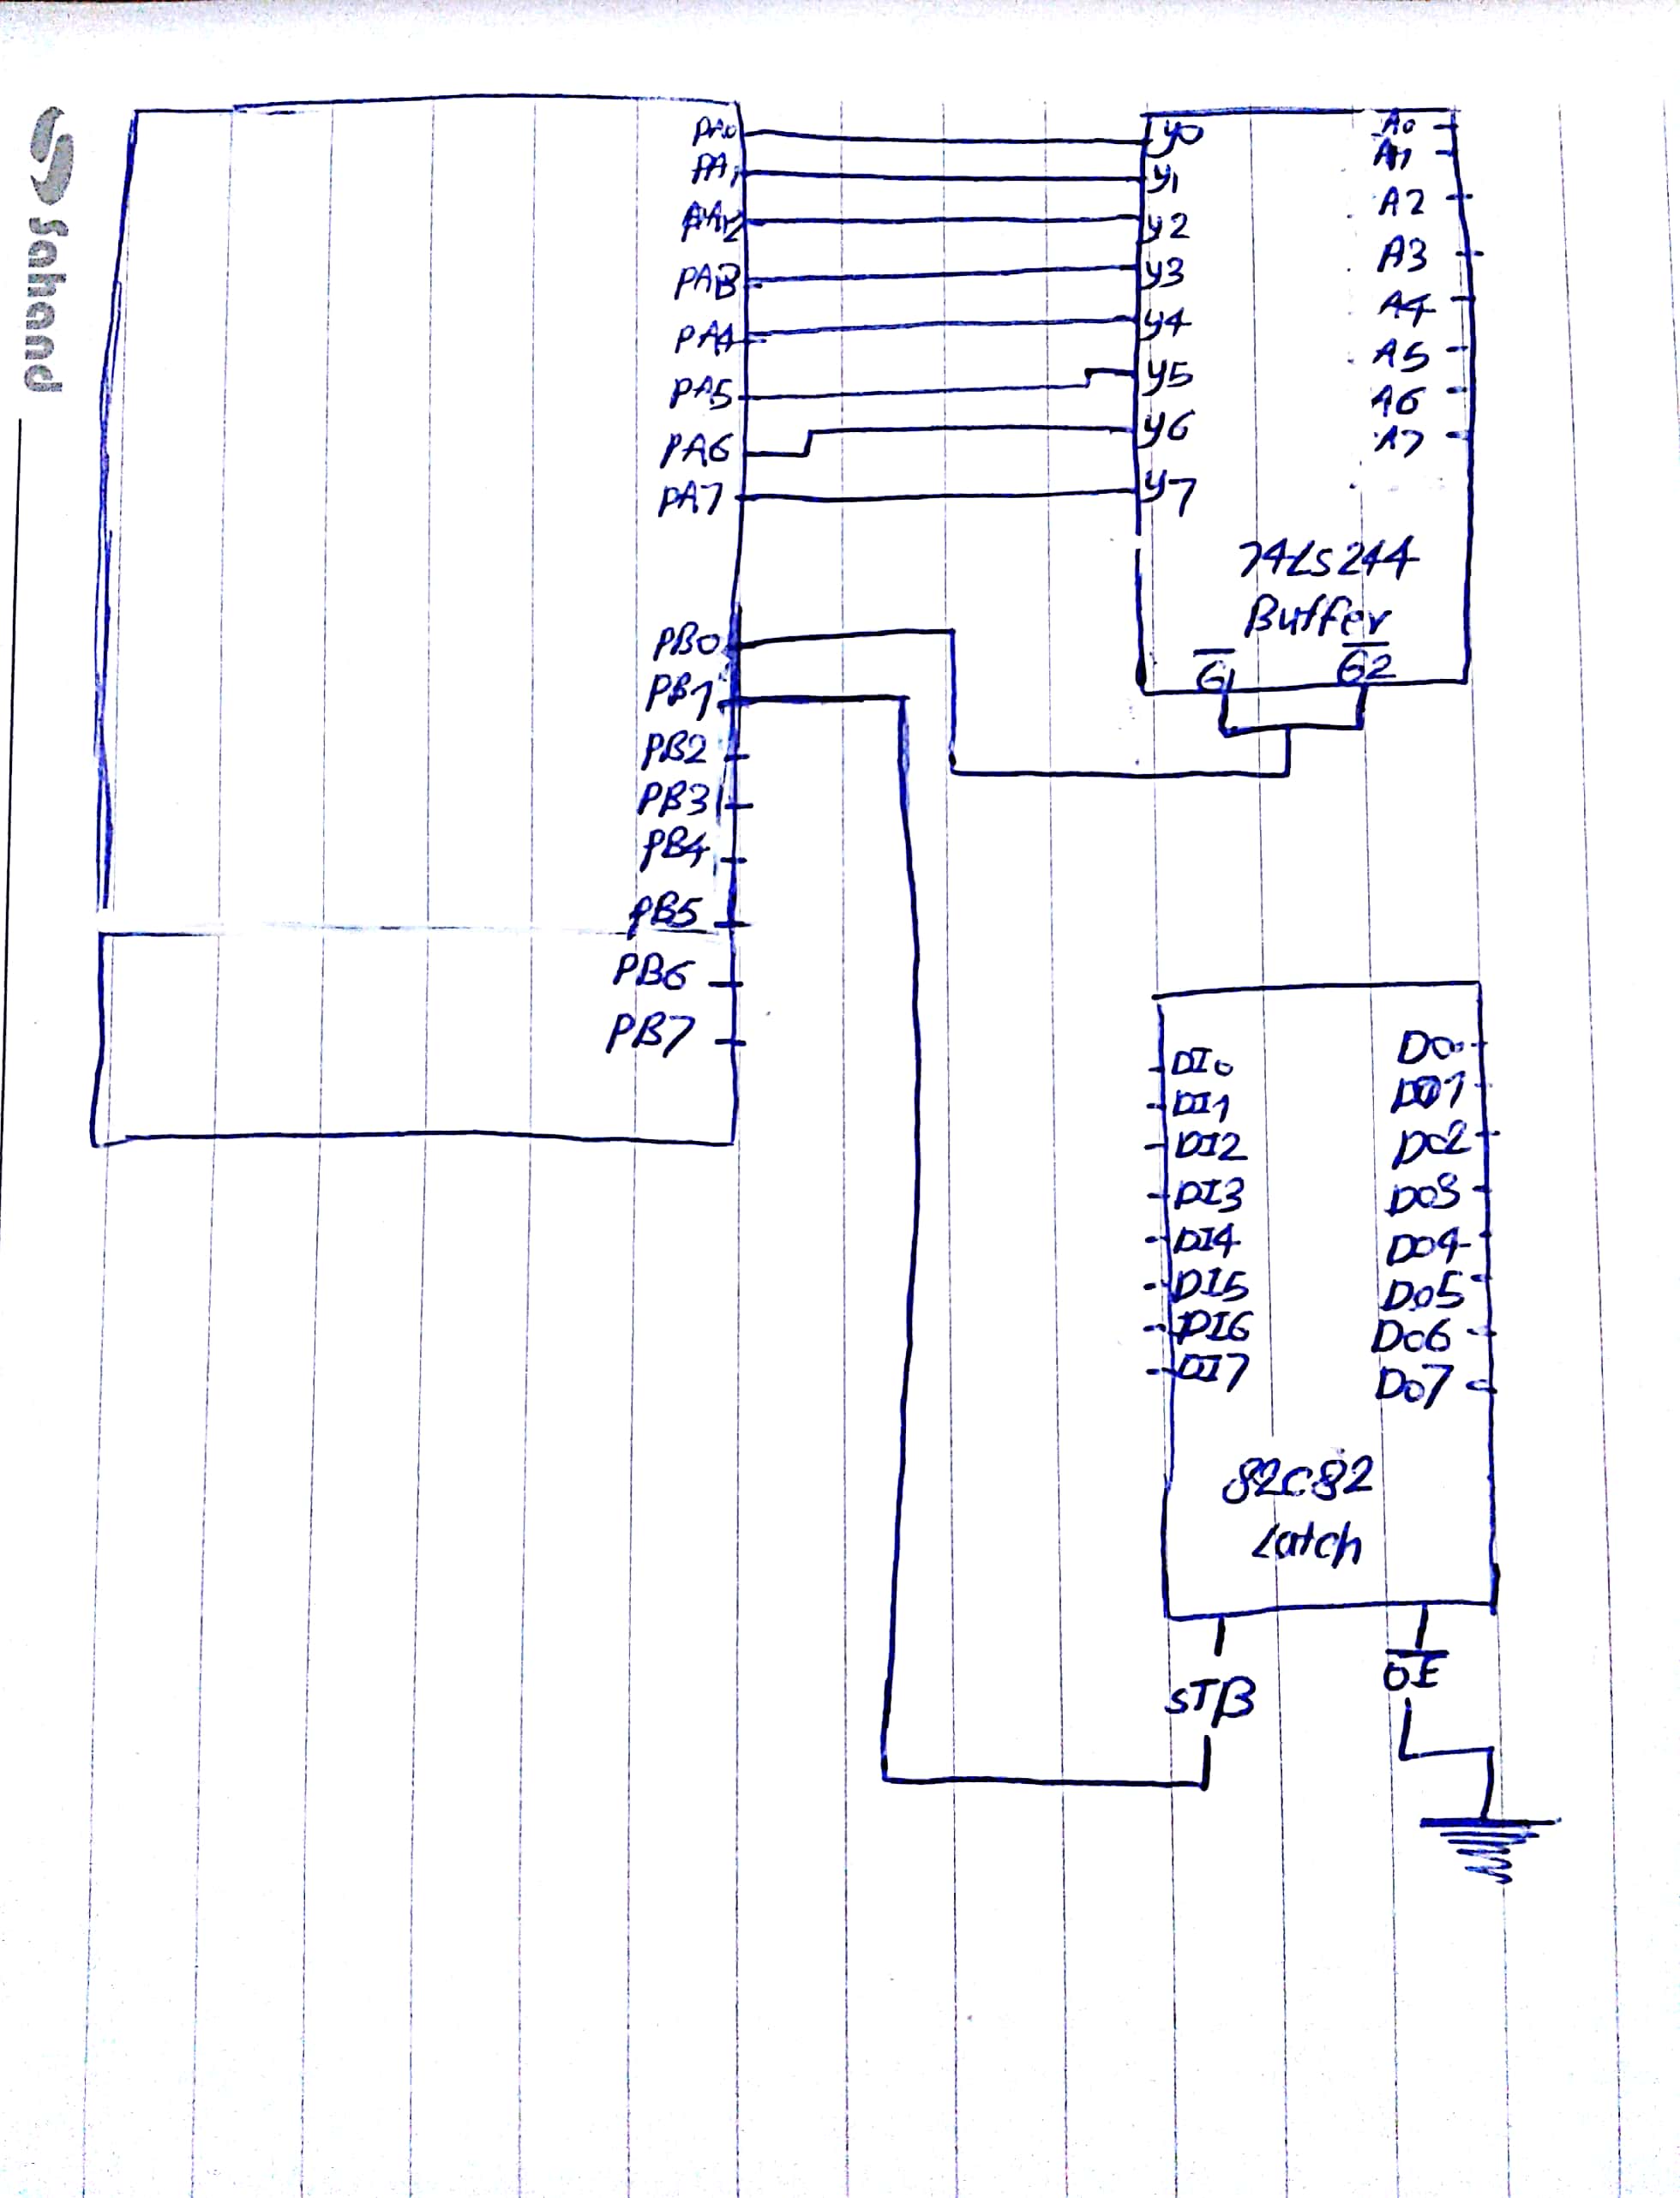 Sahand
PA0
PA1
PA2
PA3
PA4
PA5
PA6
PA7
PB0
PB1
PB2
PB3
PB4
PB5
PB6
PB7
y0
y1
y2
y3
y4
y5
y6
y7
A0
A1
A2
A3
A4
A5
A6
A7
74LS244
Buffer
G1 G2
DI0
DI1
DI2
DI3
DI4
DI5
DI6
DI7
DO1
DO2
DO3
DO4
DO5
DO6
DO7
82C82
Latch
STB
OE